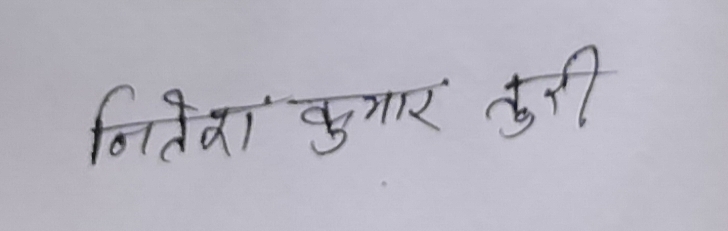 नितेश कुमार तुरी